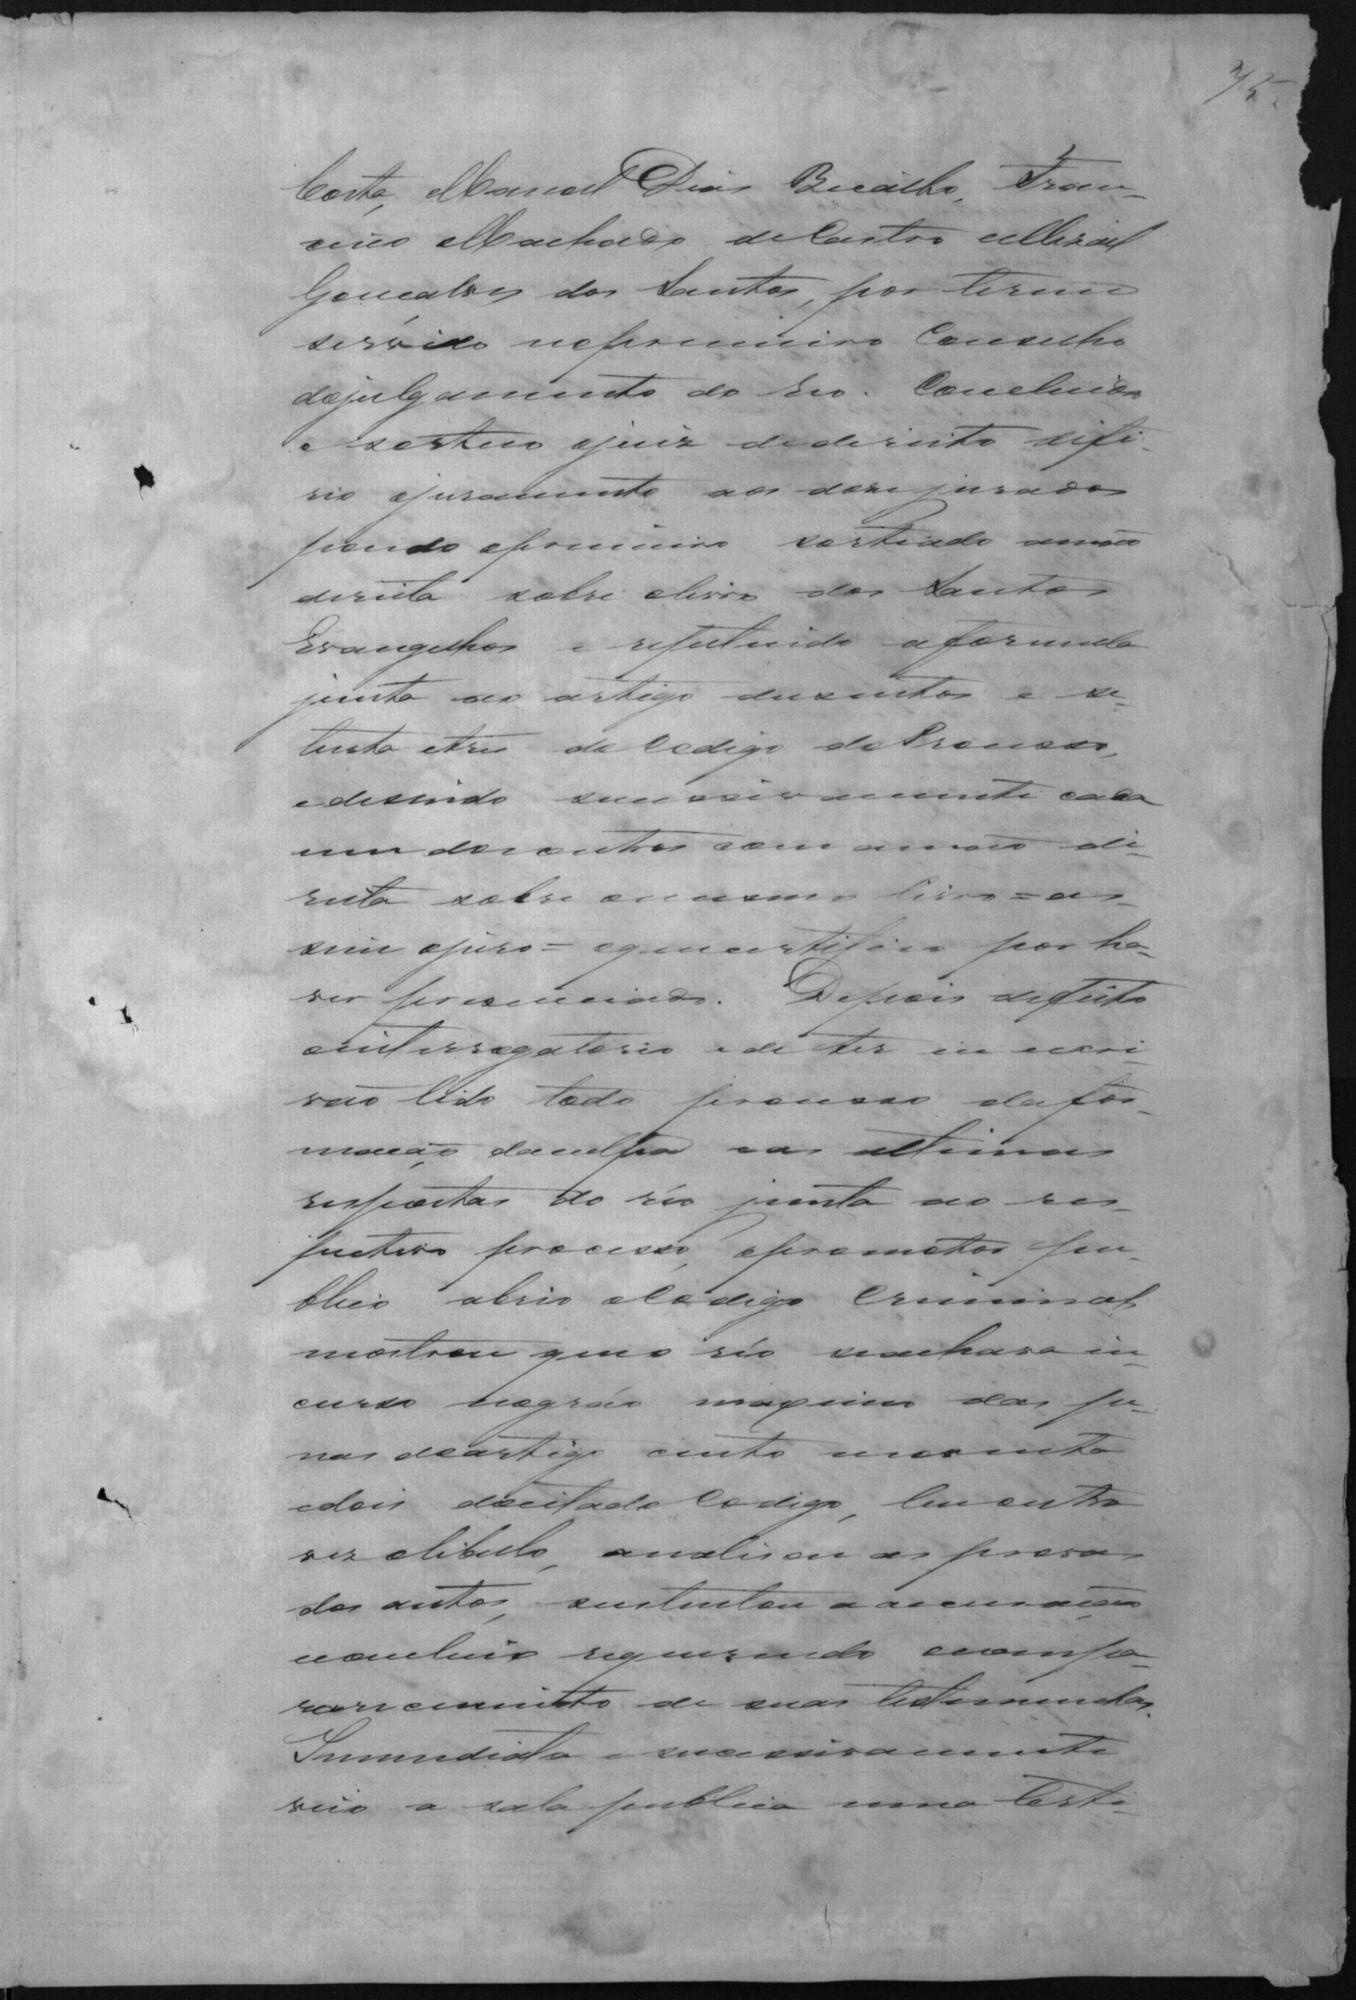 75.
Costa, Manoel Dias Bicalho, Fran-
cisco Machado de Castro e Misael
Gonçalves dos Santos, por terem
servido no primeiro Conselho
dejulgamento do reo. Concluido
o sorteio ojuiz dedireito difi-
rio ojuramento aos doze jurados
pondo oprimeiro sorteado amão
direita sobre olivro dos Santos
Evangelhos e repetindo aformula
junta ao artigo duzentos e se-
tenta etres do Codigo do Processo,
edizendo successivamente cada
um dos outros com amão di-
reita sobre omesmo livro = as-
sim ojuro = oque certifico por ha-
ver presenciado. Depois defeito
ointerrogatorio e de ter eu escri-
vão lido todo processo dafor-
mação daculpa e as ultimas
respostas do réo junta ao res-
pectivo processo, opromotor pu-
blico abrio oCodigo Criminal
mostrou que o réo seachava in-
curso nográo maximo das pe-
nas doartigo cento e noventa
edois docitado Codigo, leu outra
vez olibello, analisou as provas
dos autos, sustentou a accusação
econcluio requerendo ocompa-
recimento de suas testemunhas.
Immediata e successivamente
veio a sala publica uma teste-